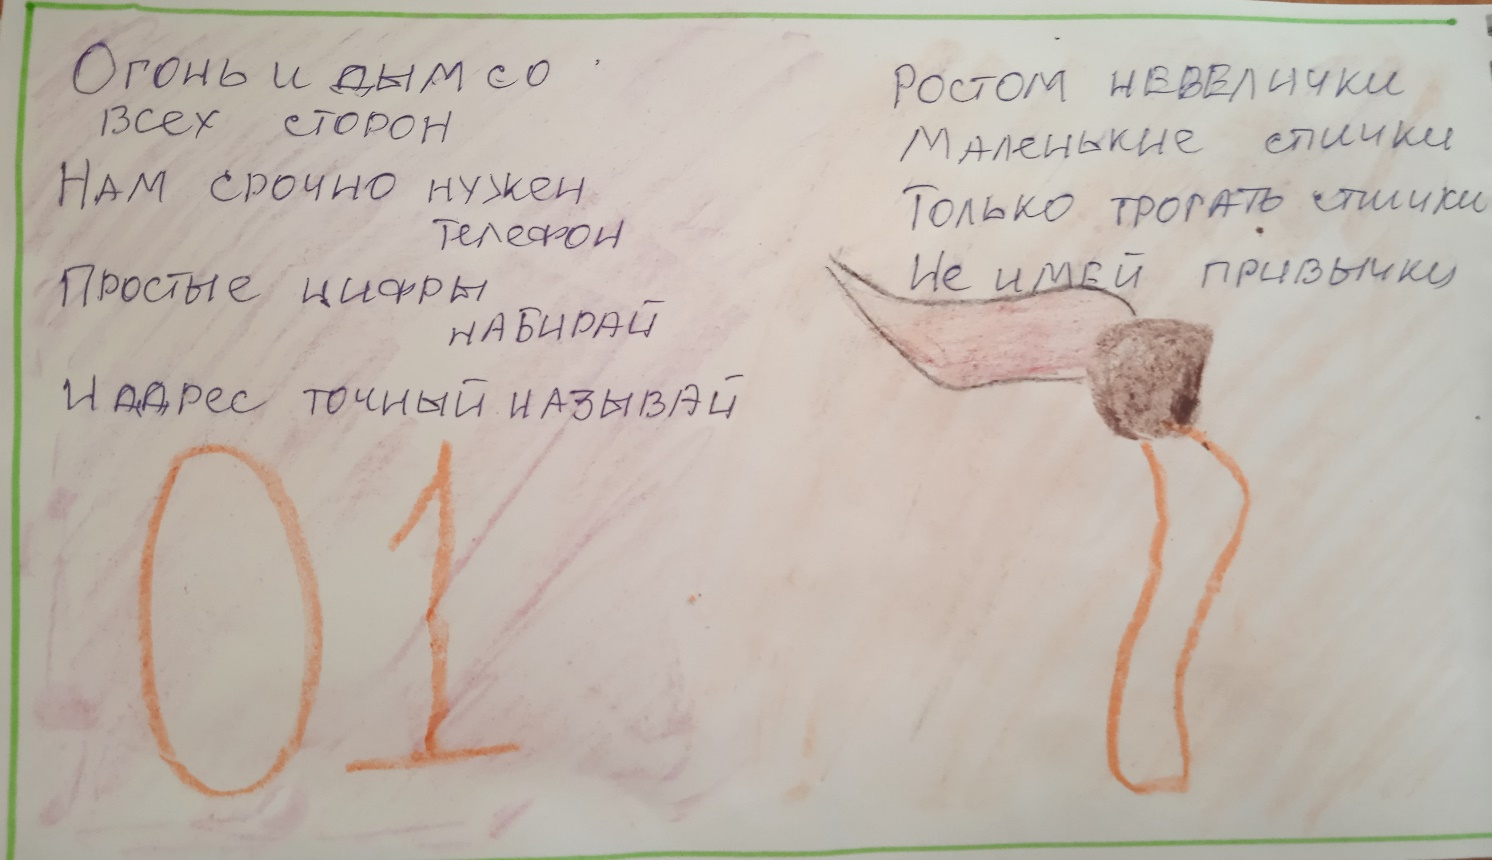 Огонь и дым со
всех сторон
Нам срочно нужен
телефон
Простые цифры
набирай
И адрес точный называй
01
Ростом невелички
Маленькие спички
Только трогать спички
Не имей привычки